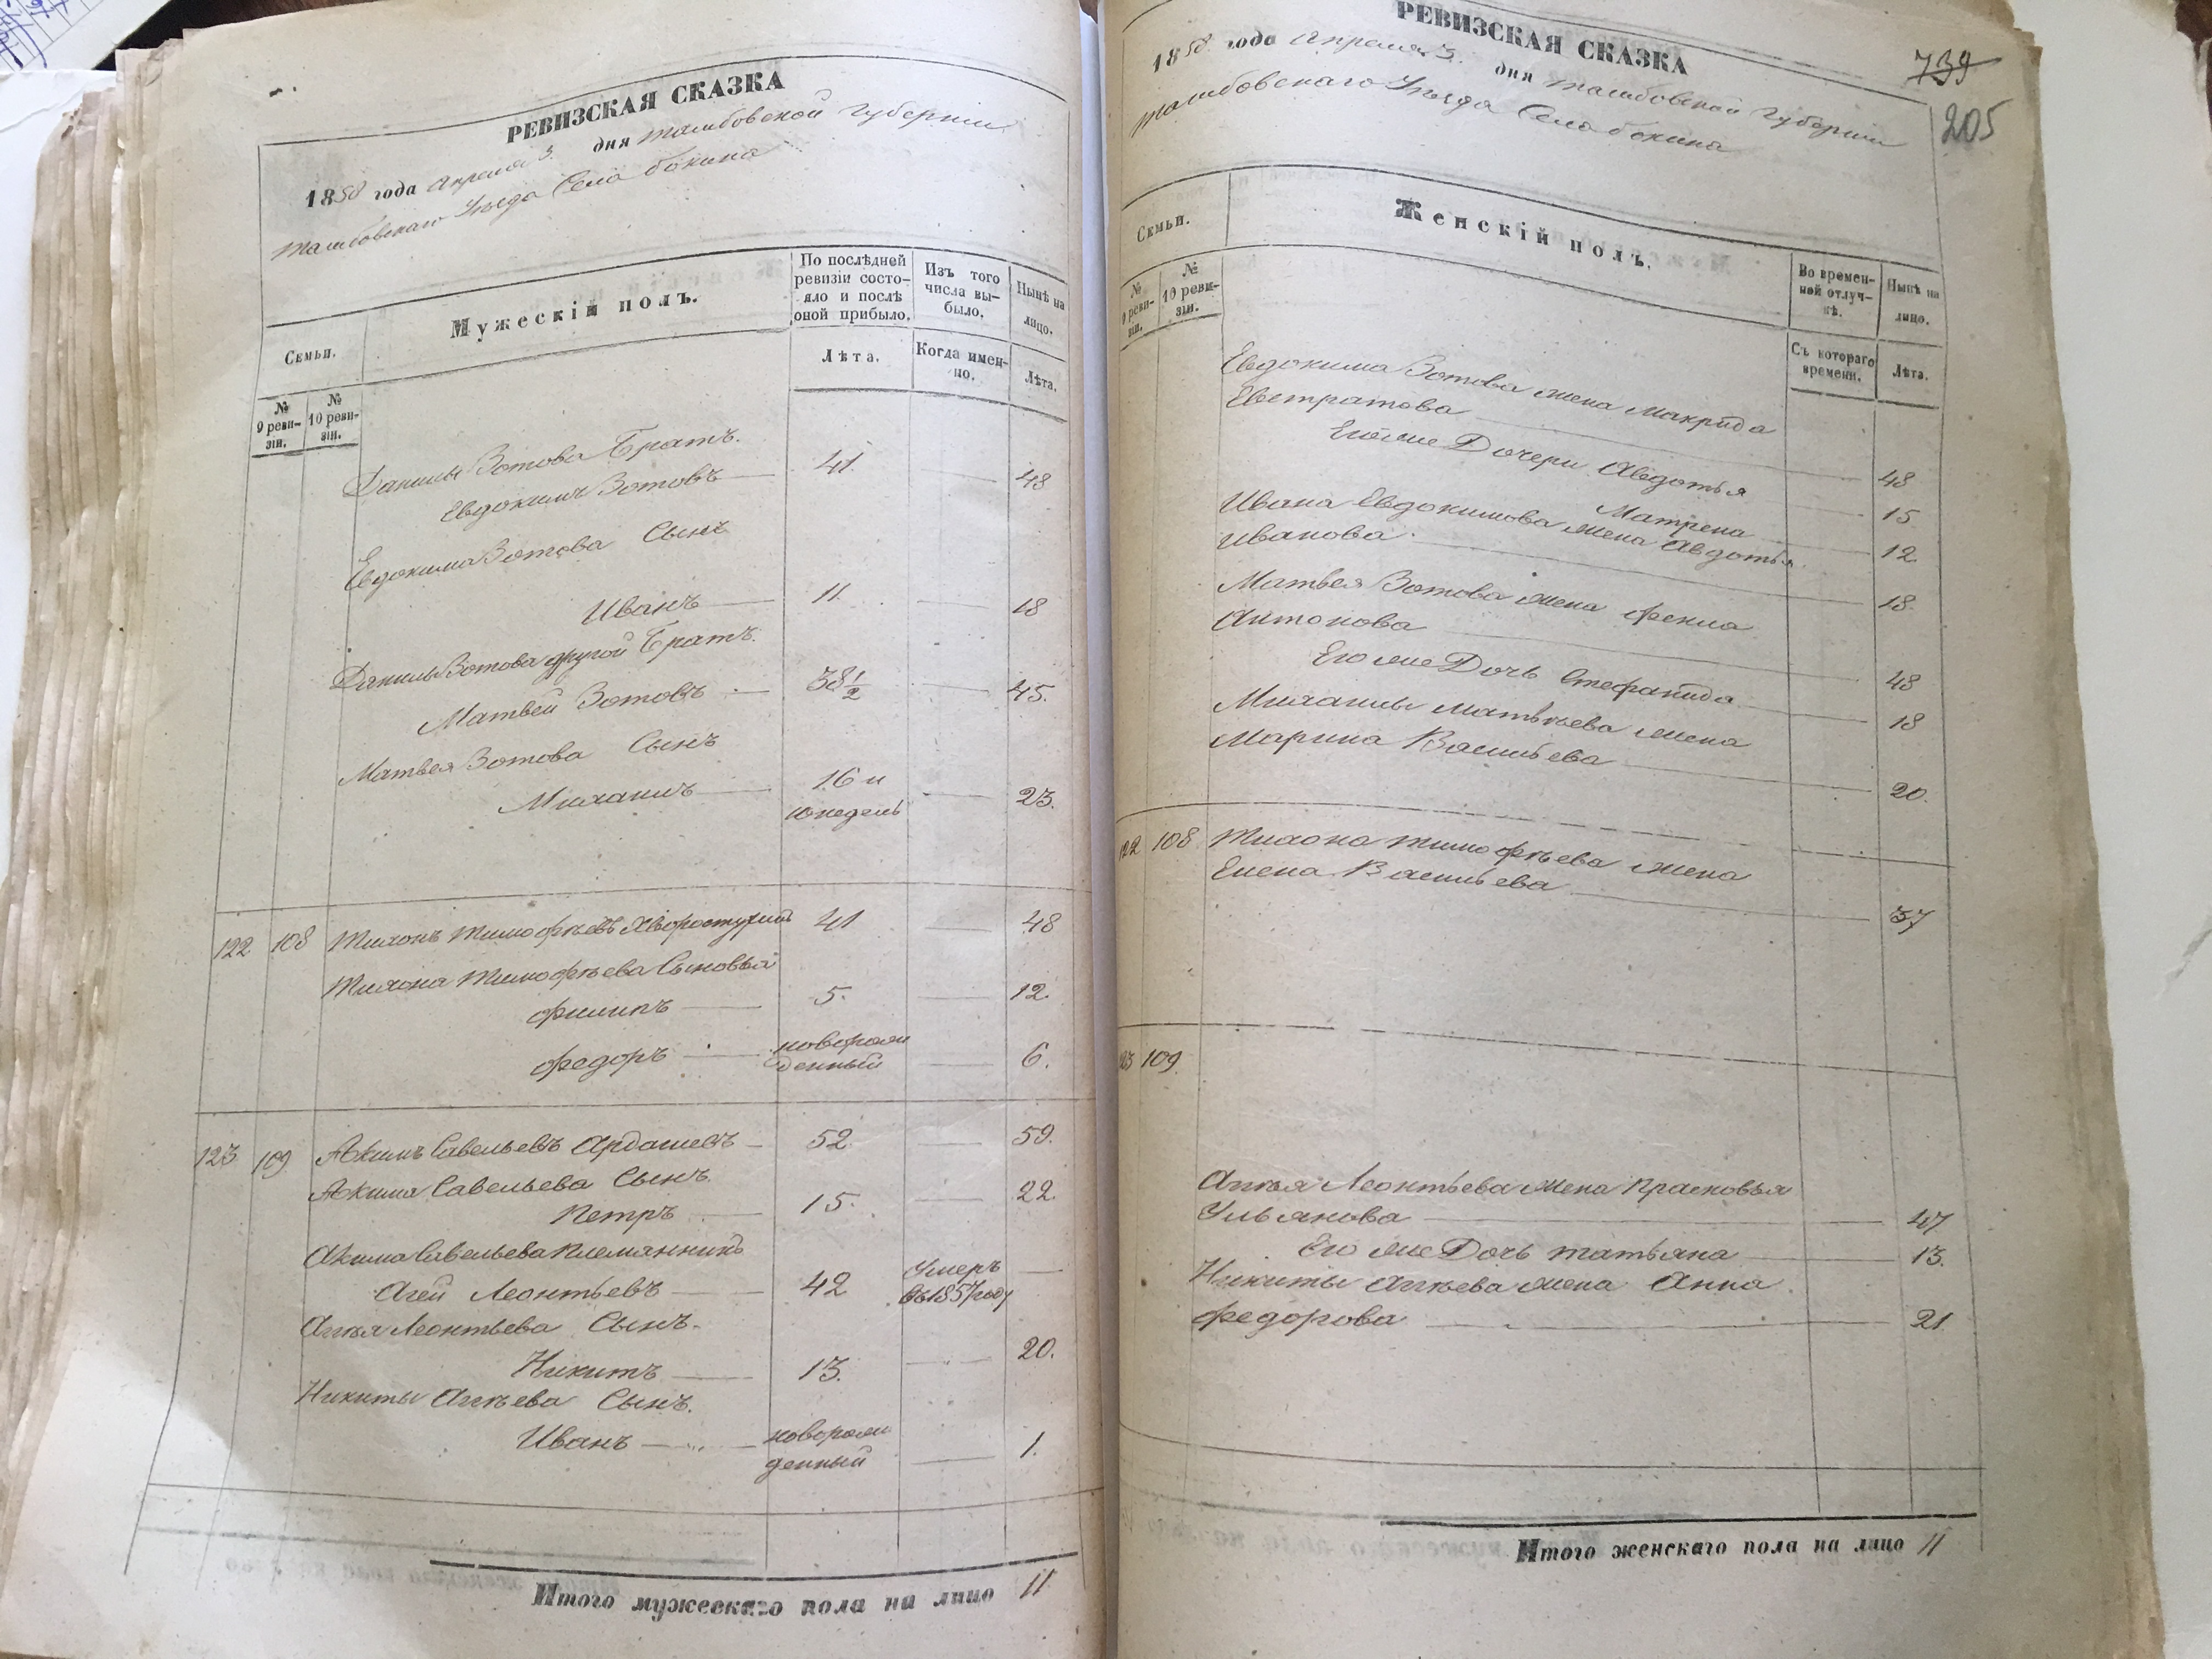 РЕВИЗСКАЯ СКАЗКА
1858 года апреля 3. дня тамбовской губернии
тамбовскаго Уѣзда Села бокина
Семьи.
Мужескій полъ.
По послѣдней ревизіи состояло и послѣ оной прибыло.
Изъ того числа выбыло.
Нынѣ на лицо.
№ 9 ревизіи.
№ 10 ревизіи.
Лѣта.
Когда именно.
Лѣта.
Данилы Зотова Братъ.
Евдокимъ Зотовъ 41. 48
Евдокима Зотова Сынъ
Иванъ 11. 18
Данилы Зотова другой Братъ.
Матвей Зотовъ 38 1/2 45.
Матвея Зотова Сынъ
Михаилъ 16 и 10 недель 23.
122 108 Тихонъ тимофѣевъ Хворостухинъ 41 48
Тихона Тимофѣева Сыновья
филипъ 5. 12.
федоръ новорожденный 6.
123 109 Акимъ Савельевъ Ардашевъ 52 59.
Акима Савельева Сынъ.
Петръ 15. 22.
Акима Савельева племянникъ
Агей Леонтьевъ 42 Умеръ въ 1857 году
Агѣя Леонтьева Сынъ.
Никитъ 13. 20.
Никиты Агѣева Сынъ.
Иванъ новорожденный 1.
Итого мужескаго пола на лицо 11
РЕВИЗСКАЯ СКАЗКА
739
205
1858 года апреля 3. дня тамбовской губернии
тамбовскаго Уѣзда Села бокина
Семьи.
Женскій полъ.
Во временной отлучкѣ.
Нынѣ на лицо.
№ 9 ревизіи.
№ 10 ревизіи.
Съ котораго времени.
Лѣта.
Евдокима Зотова жена Макрида
Евстратова 48
Его же Дочери Авдотья 15
Матрена 12
Ивана Евдокимова жена Авдотья
иванова. 18.
Матвея Зотова жена фекла
Антонова 48
Его же Дочь Стефанида 18
Михаилы матвѣева жена
Марина Васильева 20.
122 108 Тихона тимофѣева жена
Елена Васильева 37
123 109.
Агѣя Леонтьева жена Прасковья
Ульянова 47
Его же Дочь татьяна 13.
Никиты Агѣева жена Анна
федорова 21
Итого женскаго пола на лицо 11